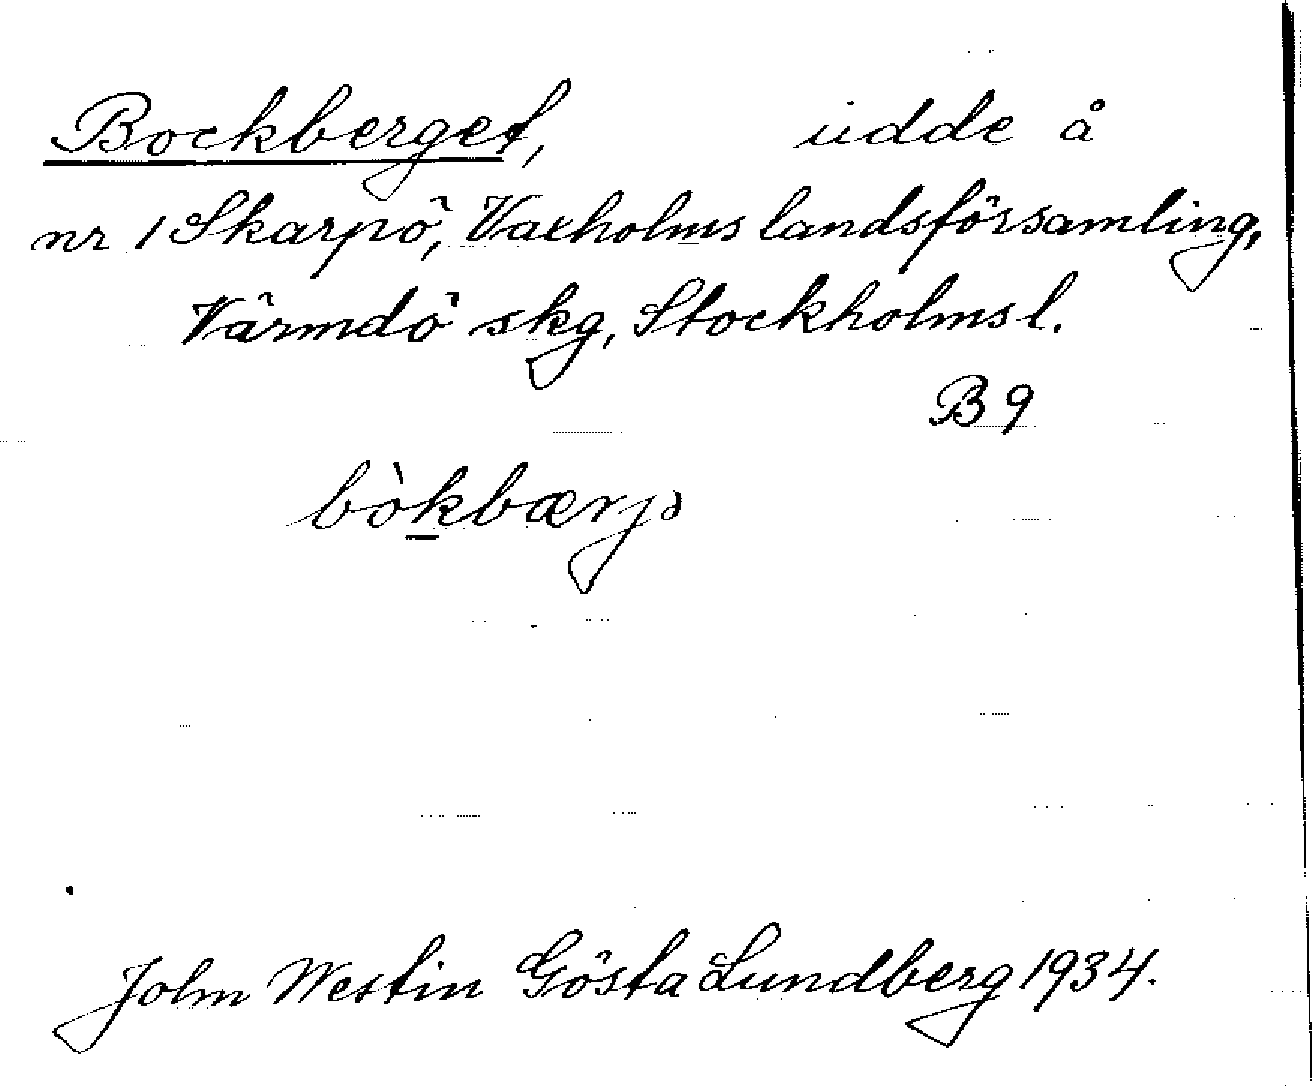 Bockberget, udde å
nr 1 Skarpö, Vaxholms landsförsamling,
Värmdö skg, Stockholms l.
B 9
bòkbærjə
John Westin Gösta Lundberg 1934.